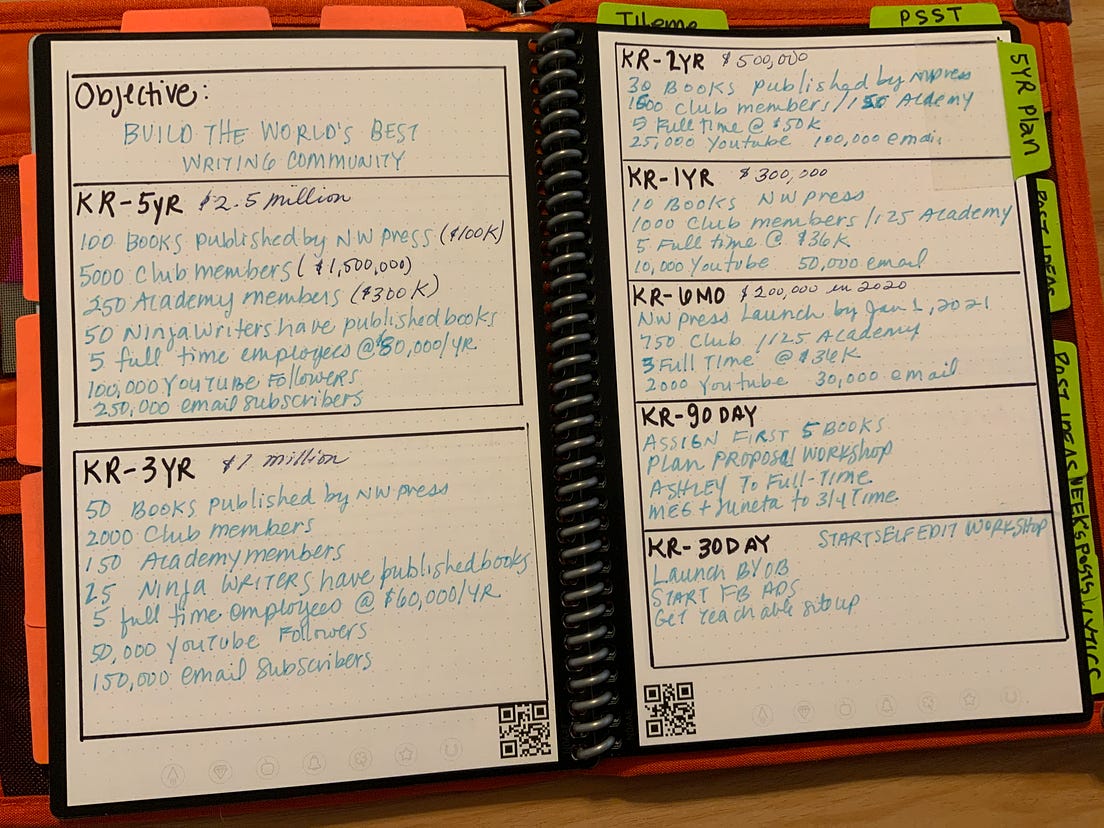 Theme
PSST
5YR Plan
POST IDEAS
POST IDEAS
WEEKS POSTS
Objective:
BUILD THE WORLD'S BEST
WRITING COMMUNITY
KR-5YR $2.5 million
100 Books published by NW press ($100K)
5000 Club members ($1,500,000)
250 Academy members ($300K)
50 Ninja writers have published books
5 full time employees @$80,000/YR
100,000 YOUTUBE Followers
250,000 email subscribers
KR-3YR $1 million
50 Books published by NW press
2000 Club members
150 Academy members
25 Ninja WRITERS have published books
5 full time employees @ $60,000/YR
50,000 YouTube Followers
150,000 email subscribers
KR-2YR $500,000
30 Books published by NW press
1500 Club members / 150 Academy
5 Full time @ $50K
25,000 Youtube 100,000 email
KR-1YR $300,000
10 Books NW Press
1000 Club members / 125 Academy
5 Full time @ $36K
10,000 Youtube 50,000 email
KR-6MO $200,000 in 2020
NW Press Launch by Jan 1, 2021
750 Club / 125 Academy
3 Full Time @ $36K
2000 Youtube 30,000 email
KR-90 DAY
ASSIGN FIRST 5 BOOKS
Plan PROPOSAL WORKSHOP
ASHLEY TO Full-Time
MEG + Juneta to 3/4 Time
KR-30DAY START SELF EDIT WORKSHOP
Launch BYOB
START FB ADS
Get teachable site up